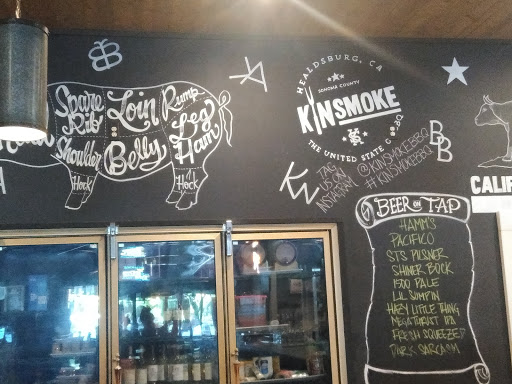 Spare
Rib
Loin
Rump
Leg
Ham
Shoulder
Belly
Hock
Hock
HEALDSBURG, CA
SONOMA COUNTY
KINSMOKE
THE UNITED STATE
TAG
US ON
INSTAGRAM
@KINSMOKEBBQ
#KINSMOKEBBQ
BEER ON TAP
HAMM'S
PACIFICO
STS PILSNER
SHINER BOCK
1500 PALE
LIL SUMPIN
HAZY LITTLE THING
MEGATHRUST IPA
FRESH SQUEEZED
DARK SARCASM
CALIF